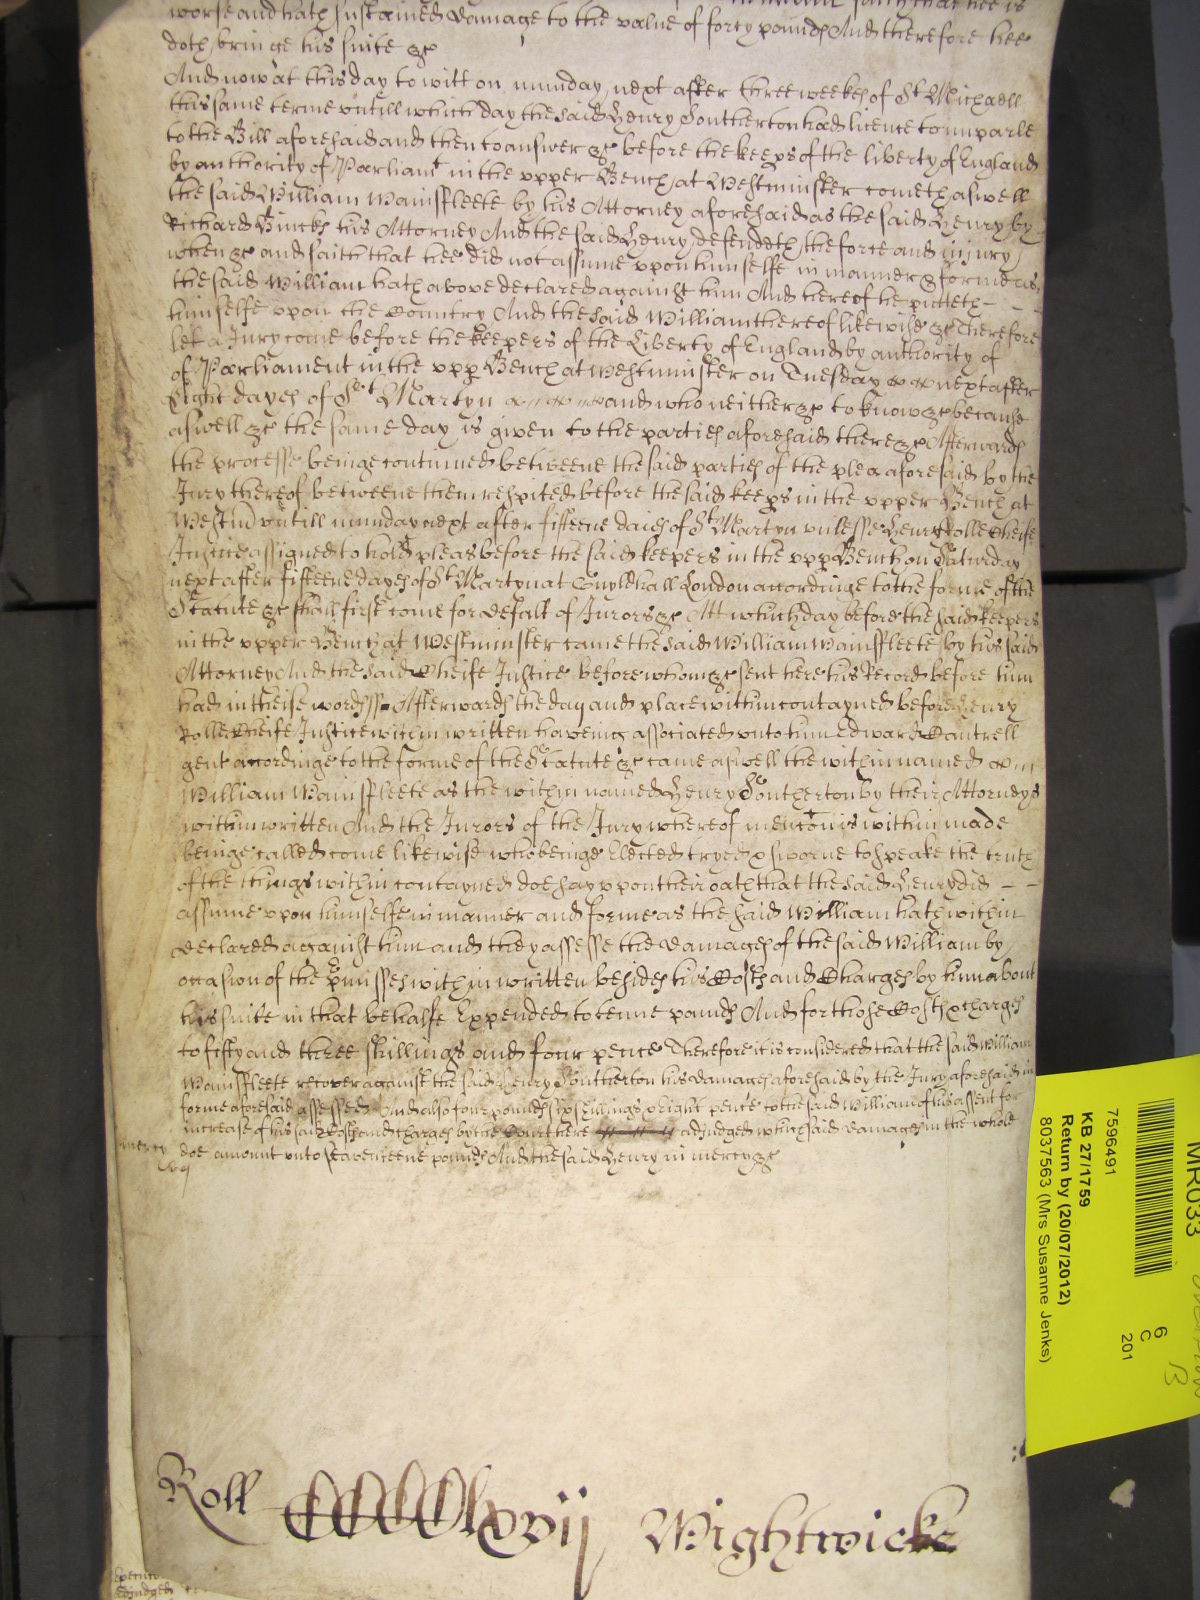 worse and hath sustained damage to the value of forty pounds And therefore hee
doth bringe his suite &c
And now at this day to witt on munday next after three weekes of St Michaell
this same terme untill which day the said Henry Southerton had licence to imparle
to the Bill aforesaid and then to answer &c before the keeps of the liberty of England
by authority of Parliamt in the upper Bench at Westminster cometh aswell
the said William Mainsfleete by his Attorney aforesaid as the said Henry by
Richard Bincks his Attorney And the said Henry defendeth the force and injury
when &c and saith that hee did not assume upon himselfe in manner & forme as
the said William hath above declared against him And thereof he putteth
himselfe upon the Country And the said William thereof likewise &c Therefore
let a Jury come before the keepers of the Liberty of England by authority of
of Parliament in the upp Bench at Westminster on Tuesday next after
Eight dayes of St Martyn and who neither &c to know &c because
aswell &c the same day is given to the parties aforesaid there &c Afterwards
the processe beinge continued betweene the said parties of the plea aforesaid by the
Jury thereof betweene them respited before the said keeps in the upper Bench at
Westm untill munday next after fifteene daies of St Martyn unlesse Henry Rolle Cheife
Justice assigned to hold pleas before the said keepers in the upp Bench on Saturday
next after fifteene dayes of St Martyn at Guyldhall London accordinge to the forme of the
Statute &c shall first come for defalt of Jurors &c Att which day before the said keepers
in the upper Bench at Westminster came the said William Mainsfleete by his said
Attorney And the said Cheife Justice before whom &c sent here his Record before him
had in theise words ss Afterwards the day and place within contayned before Henry
Rolle Cheife Justice within written haveing associated unto him Edward Cantrell
gent accordinge to the forme of the Statute &c came aswell the within named
William Mainsfleete as the within named Henry Southerton by their Attorneys
within written And the Jurors of the Jury whereof mencon is within made
beinge called come likewise who beinge Elected tryed & sworne to speake the truth
of the things within contayned doe say upon their oath that the said Henry did
assume upon himselfe in manner and forme as the said William hath within
declared against him and they assesse the damages of the said William by
occasion of the pmisses within written besides his Costs and Charges by him about
his suite in that behalfe Expended to tenne pounds And for those Costs & charges
to fifty and three shillings and four pence Therefore it is considered that the said William
Mainsfleete recover against the said Henry Southerton his damages aforesaid by the Jury aforesaid in
forme aforesaid assessed And also four pounds six shillings & eight pence to the said William of his assent for
increase of his said Costs and charges by the Court here adjudged which said damages in the whole
mercy
doe amount unto seaventeene pounds And the said Henry in mercy &c
Roll CCCClxvij Wightwicke
MR033
7596491
KB 27/1759
Return by (20/07/2012)
8037563 (Mrs Susanne Jenks)
6
C
201